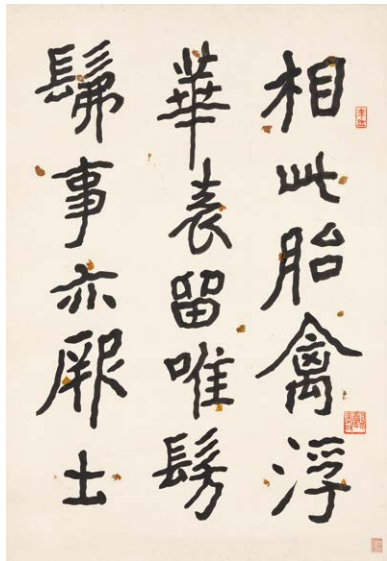 相此胎禽浮
華表留唯髣
髴事亦厥土